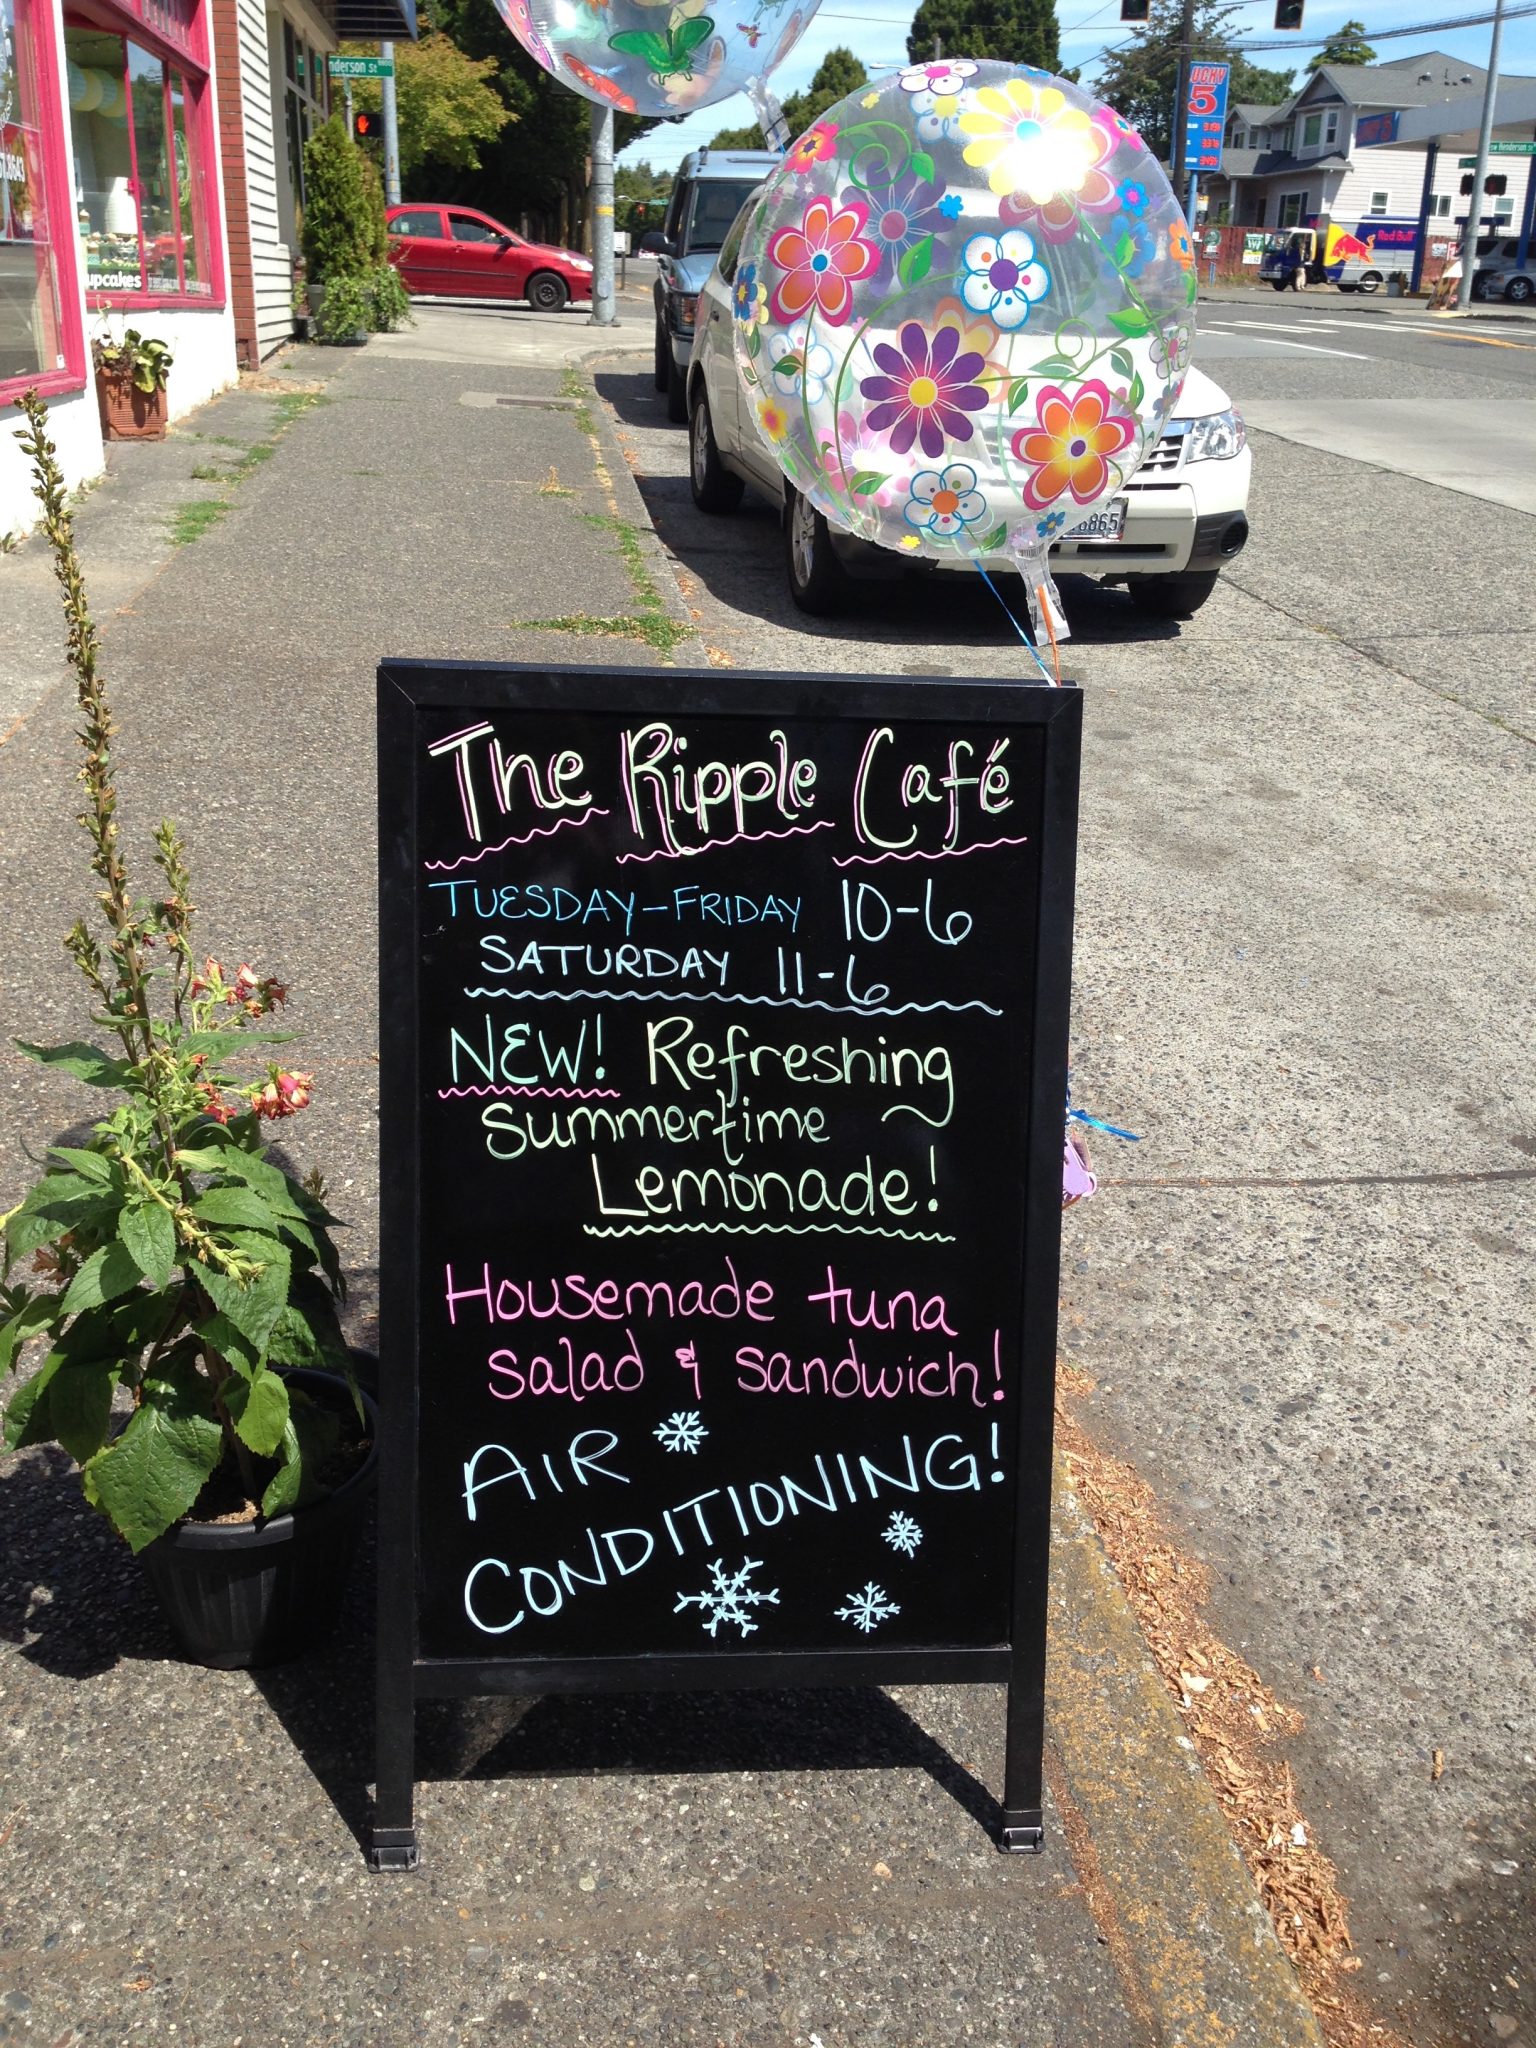 The Ripple Café
TUESDAY-FRIDAY 10-6
SATURDAY 11-6
NEW! Refreshing
Summertime
Lemonade!
Housemade tuna
salad & sandwich!
AIR
CONDITIONING!
nderson St
upcakes
UCKY
5
Red Bull
SW Henderson St
6865